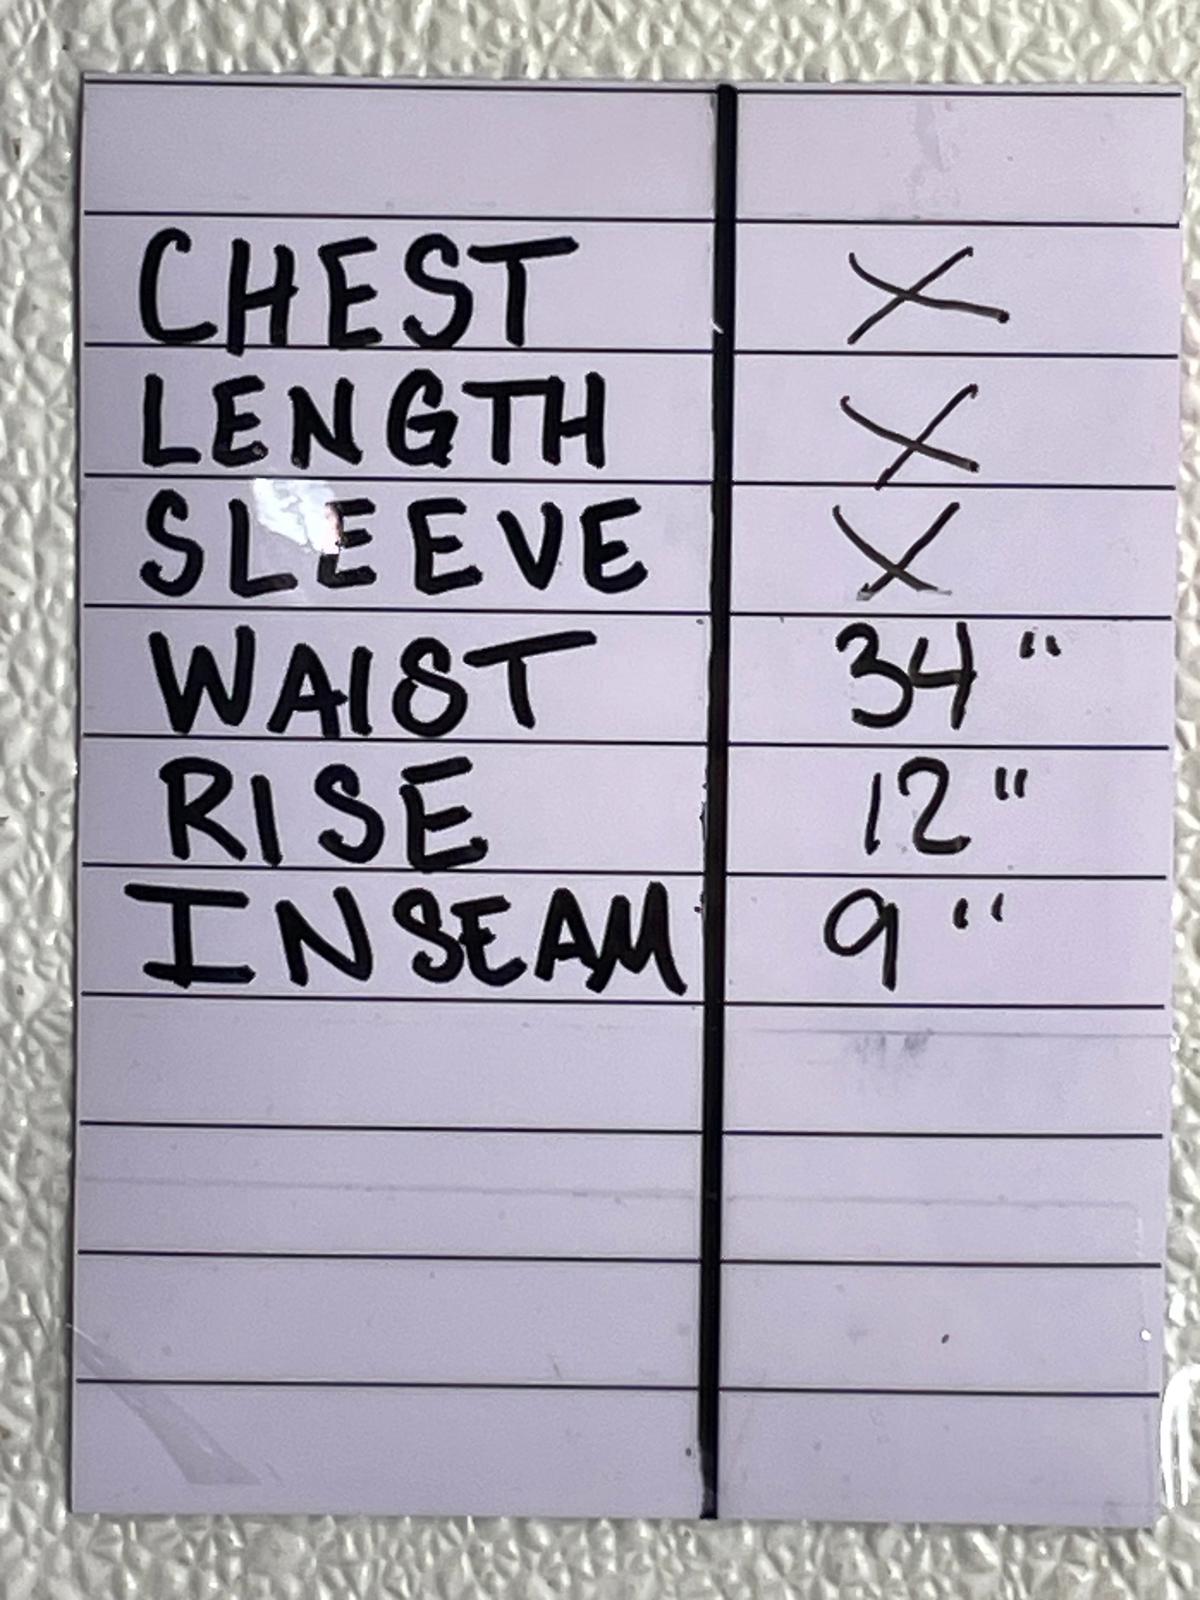 CHEST X
LENGTH X
SLEEVE X
WAIST 34"
RISE 12"
INSEAM 9"